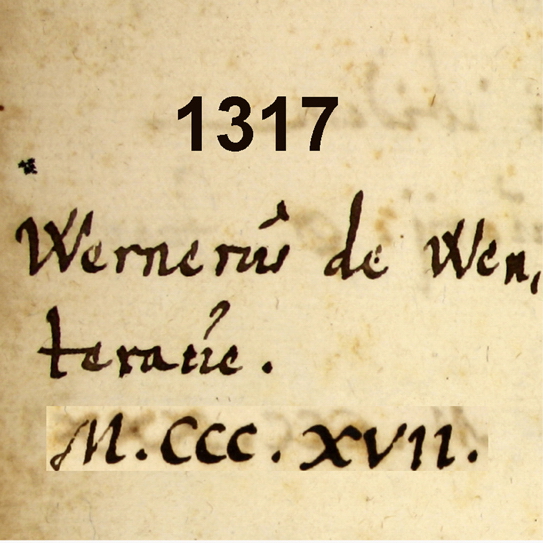 1317
Wernerus de Wen,
teratie.
M.CCC.XVII.